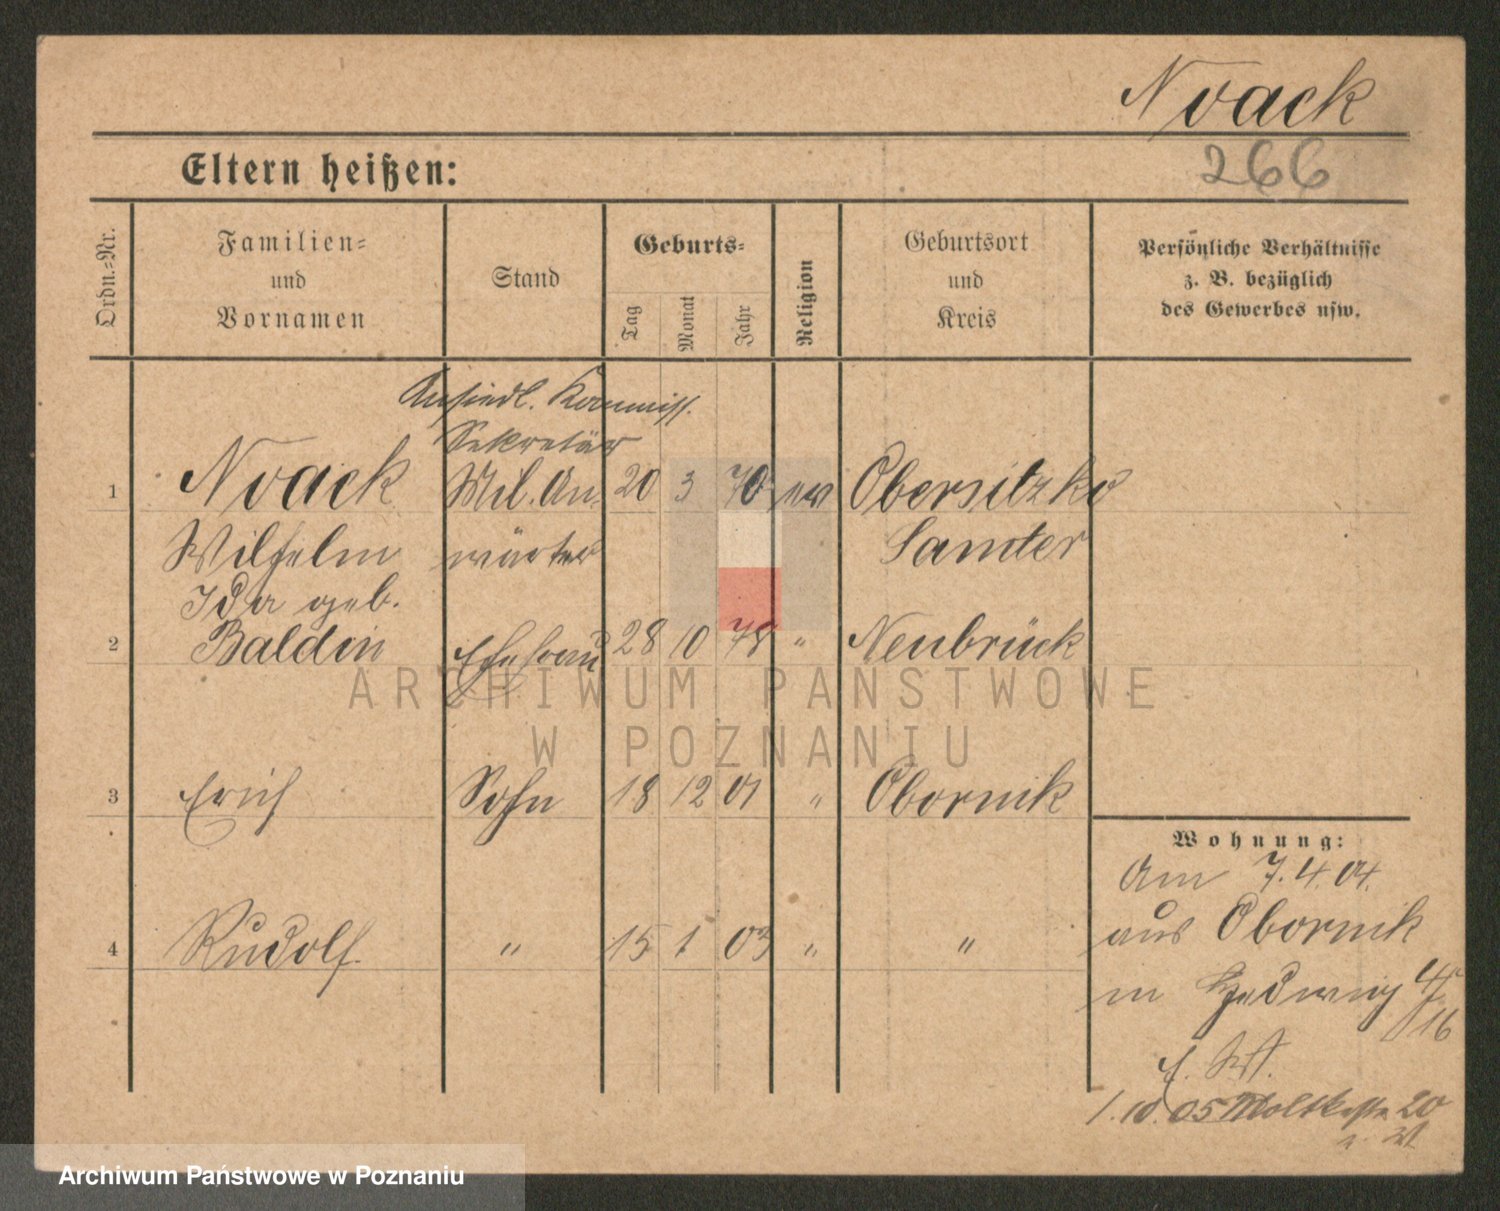 Noack
266
Eltern heißen:
Ordn.=Nr.
Familien=
und
Vornamen
Stand
Geburts=
Tag
Monat
Jahr
Religion
Geburtsort
und
Kreis
Persönliche Verhältnisse
z. B. bezüglich
des Gewerbes usw.
Ansiedl. Kommiss.
Sekretär
1 Noack Mil. An= 20 3 70 ev Obersitzko
Wilhelm wärter Samter
Ida geb.
2 Baldin Ehefrau 28 10 78 " Neubrück
3 Erich Sohn 18 12 01 " Obornik
4 Rudolf " 15 1 03 " "
Wohnung:
Am 7.4.04.
aus Obornik
in Hedwig
16
1.10.05 Moltkestr 20
ARCHIWUM PAŃSTWOWE
W POZNANIU
Archiwum Państwowe w Poznaniu